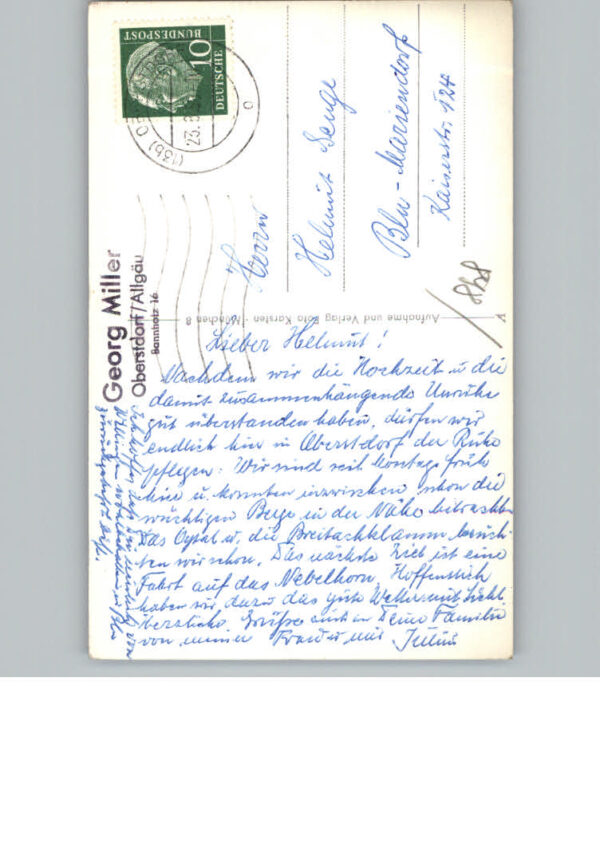 DEUTSCHE
BUNDESPOST
10
(13b)
23.
Georg Miller
Oberstdorf/Allgäu
Bannholz 16
Herrn
Helmut
Bln-Mariendorf
Kaiserstr. 124
Aufnahme und Verlag Foto Karsten - München 8
A
Lieber Helmut!
Nachdem wir die Hochzeit u die
damit zusammenhängende Unruhe
gut überstanden haben, dürfen wir
endlich hier in Oberstdorf der Ruhe
pflegen. Wir sind seit Montag früh
hier u. konnten inzwischen schon die
wuchtigen Berge in der Nähe betrachten
Das Oytal u. die Breitachklamm besuch-
ten wir schon. Das nächste Ziel ist eine
Fahrt auf das Nebelhorn. Hoffentlich
haben wir dazu das gute Wetter mit Sicht
Herzliche Grüße auch an Deine Familie
von meiner Frau u mir